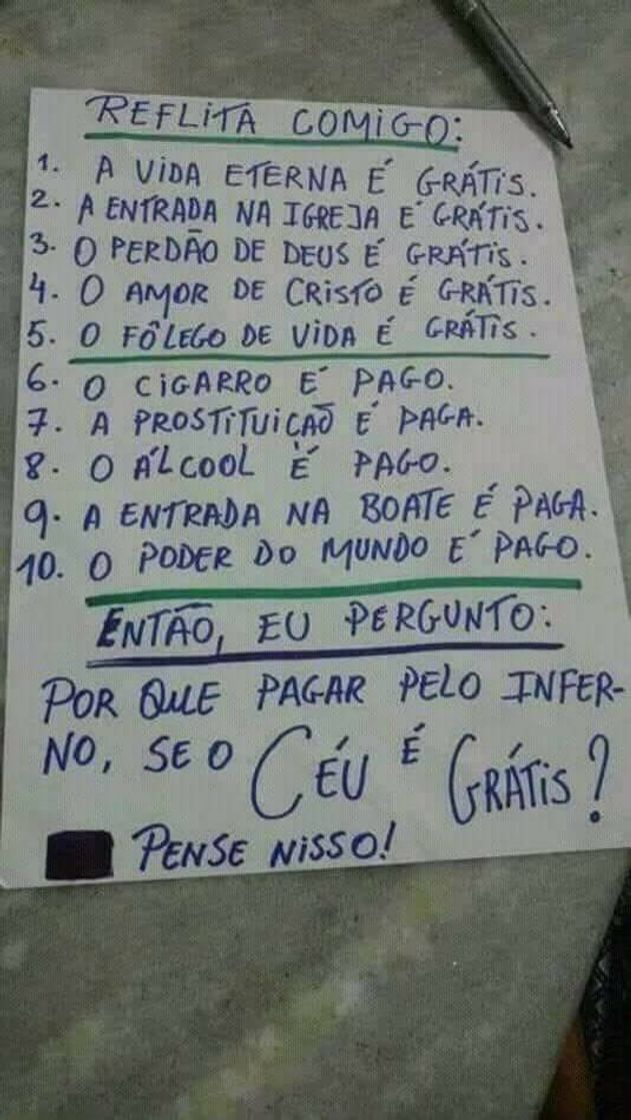 REFLITA COMIGO:
1. A VIDA ETERNA É GRÁTIS.
2. A ENTRADA NA IGREJA É GRÁTIS.
3. O PERDÃO DE DEUS É GRÁTIS.
4. O AMOR DE CRISTO É GRÁTIS.
5. O FÔLEGO DE VIDA É GRÁTIS.
6. O CIGARRO É PAGO.
7. A PROSTITUIÇÃO É PAGA.
8. O ÁLCOOL É PAGO.
9. A ENTRADA NA BOATE É PAGA.
10. O PODER DO MUNDO É PAGO.
ENTÃO, EU PERGUNTO:
POR QUE PAGAR PELO INFER-
NO, SE O CÉU É GRÁTIS?
PENSE NISSO!